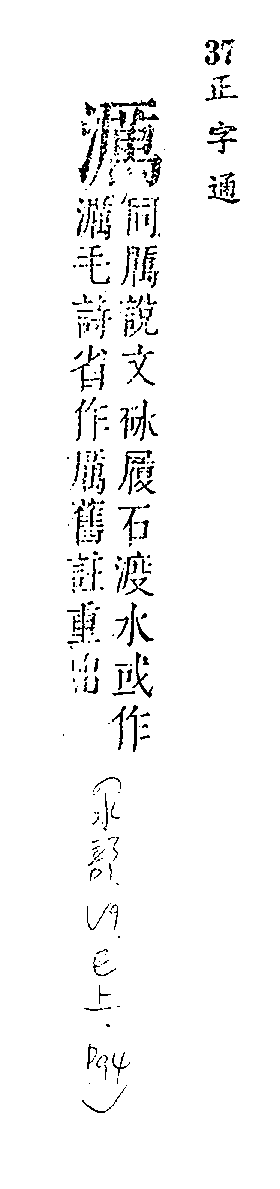 37 正字通
濿
同厲說文砅履石渡水或作
濿毛詩省作厲舊註重出
(水部.V9.巳上.P94)